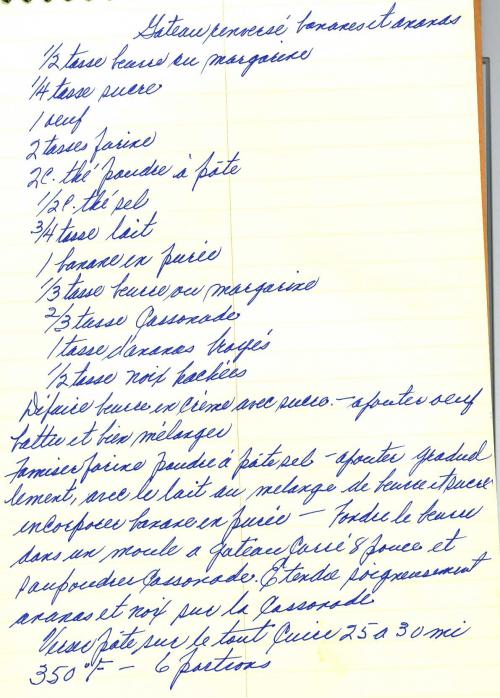 Gateau renversé bananes et ananas
1/2 tasse beurre ou margarine
1/4 tasse sucre
1 oeuf
2 tasses farine
2 c. thé poudre à pâte
1/2 c. thé sel
3/4 tasse lait
1 banane en purée
1/3 tasse beurre ou margarine
2/3 tasse Cassonade
1 tasse d'ananas broyés
1/2 tasse noix hachées
Défaire beurre en crème avec sucre. - ajouter oeuf
battu et bien mélanger
Tamiser farine poudre à pâte, sel - ajouter graduel
lement, avec le lait au mélange de beurre et sucre
incorporer banane en purée - Fondre le beurre
dans un moule a gateau carré 8 pouces et
saupoudrer Cassonade. Étendre soigneusement
ananas et noix sur la Cassonade
Verser pâte, sur le tout Cuire 25 a 30 mi
350°F - 6 portions